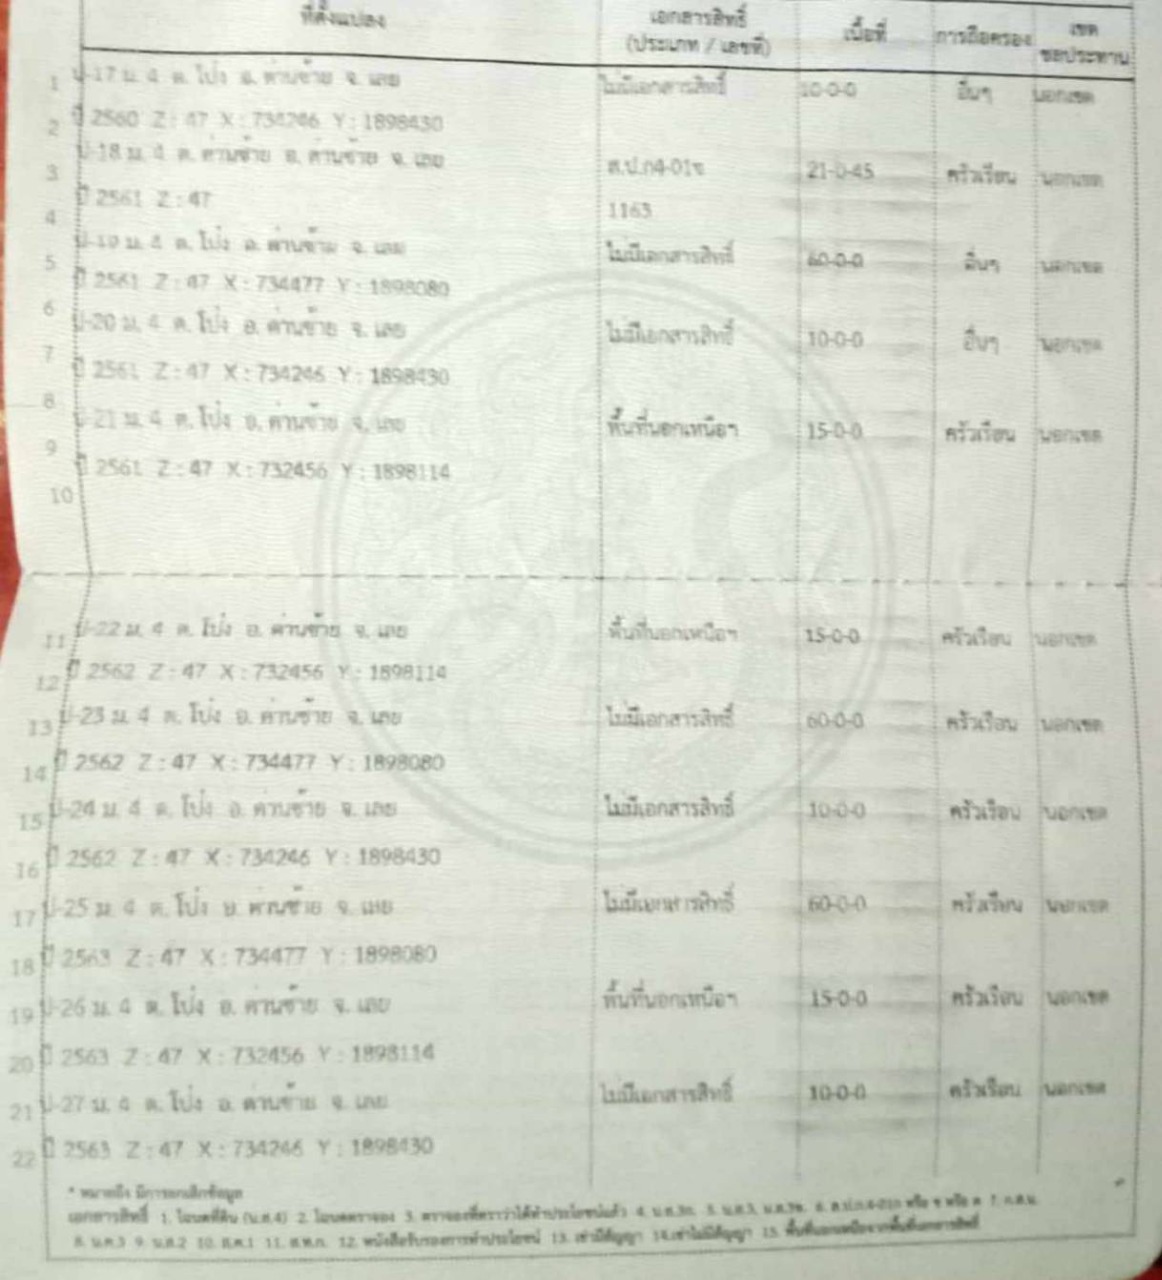 ที่ตั้งแปลง เอกสารสิทธิ์ (ประเภท / เลขที่) เนื้อที่ การถือครอง เขตชลประทาน
1 ป-17 ม. 4 ต. โป่ง อ. ด่านซ้าย จ. เลย ไม่มีเอกสารสิทธิ์ 10-0-0 อื่นๆ นอกเขต
2 ปี 2560 Z : 47 X : 734246 Y : 1898430
3 ป-18 ม. 4 ต. ด่านซ้าย อ. ด่านซ้าย จ. เลย ส.ป.ก4-01ข 21-0-45 ครัวเรือน นอกเขต
4 ปี 2561 Z : 47 1163
5 ป-19 ม. 4 ต. โป่ง อ. ด่านซ้าย จ. เลย ไม่มีเอกสารสิทธิ์ 60-0-0 อื่นๆ นอกเขต
6 ปี 2561 Z : 47 X : 734477 Y : 1898080
7 ป-20 ม. 4 ต. โป่ง อ. ด่านซ้าย จ. เลย ไม่มีเอกสารสิทธิ์ 10-0-0 อื่นๆ นอกเขต
8 ปี 2561 Z : 47 X : 734246 Y : 1898430
9 ป-21 ม. 4 ต. โป่ง อ. ด่านซ้าย จ. เลย พื้นที่นอกเหนือฯ 15-0-0 ครัวเรือน นอกเขต
10 ปี 2561 Z : 47 X : 732456 Y : 1898114
11 ป-22 ม. 4 ต. โป่ง อ. ด่านซ้าย จ. เลย พื้นที่นอกเหนือฯ 15-0-0 ครัวเรือน นอกเขต
12 ปี 2562 Z : 47 X : 732456 Y : 1898114
13 ป-23 ม. 4 ต. โป่ง อ. ด่านซ้าย จ. เลย ไม่มีเอกสารสิทธิ์ 60-0-0 ครัวเรือน นอกเขต
14 ปี 2562 Z : 47 X : 734477 Y : 1898080
15 ป-24 ม. 4 ต. โป่ง อ. ด่านซ้าย จ. เลย ไม่มีเอกสารสิทธิ์ 10-0-0 ครัวเรือน นอกเขต
16 ปี 2562 Z : 47 X : 734246 Y : 1898430
17 ป-25 ม. 4 ต. โป่ง อ. ด่านซ้าย จ. เลย ไม่มีเอกสารสิทธิ์ 60-0-0 ครัวเรือน นอกเขต
18 ปี 2563 Z : 47 X : 734477 Y : 1898080
19 ป-26 ม. 4 ต. โป่ง อ. ด่านซ้าย จ. เลย พื้นที่นอกเหนือฯ 15-0-0 ครัวเรือน นอกเขต
20 ปี 2563 Z : 47 X : 732456 Y : 1898114
21 ป-27 ม. 4 ต. โป่ง อ. ด่านซ้าย จ. เลย ไม่มีเอกสารสิทธิ์ 10-0-0 ครัวเรือน นอกเขต
22 ปี 2563 Z : 47 X : 734246 Y : 1898430
* หมายถึง มีการยกเลิกข้อมูล
เอกสารสิทธิ์ 1. โฉนดที่ดิน (น.ส.4) 2. โฉนดตราจอง 3. ตราจองที่ตราว่าได้ทำประโยชน์แล้ว 4. น.ส.3ก. 5. น.ส.3, น.ส.3ข. 6. ส.ป.ก.4-01ก หรือ ข หรือ ค 7. ก.ส.น.
8. น.ค.3 9. น.ส.2 10. ส.ค.1 11. ส.ท.ก. 12. หนังสือรับรองการทำประโยชน์ 13. เช่ามีสัญญา 14.เช่าไม่มีสัญญา 15. พื้นที่นอกเหนือจากพื้นที่เอกสารสิทธิ์